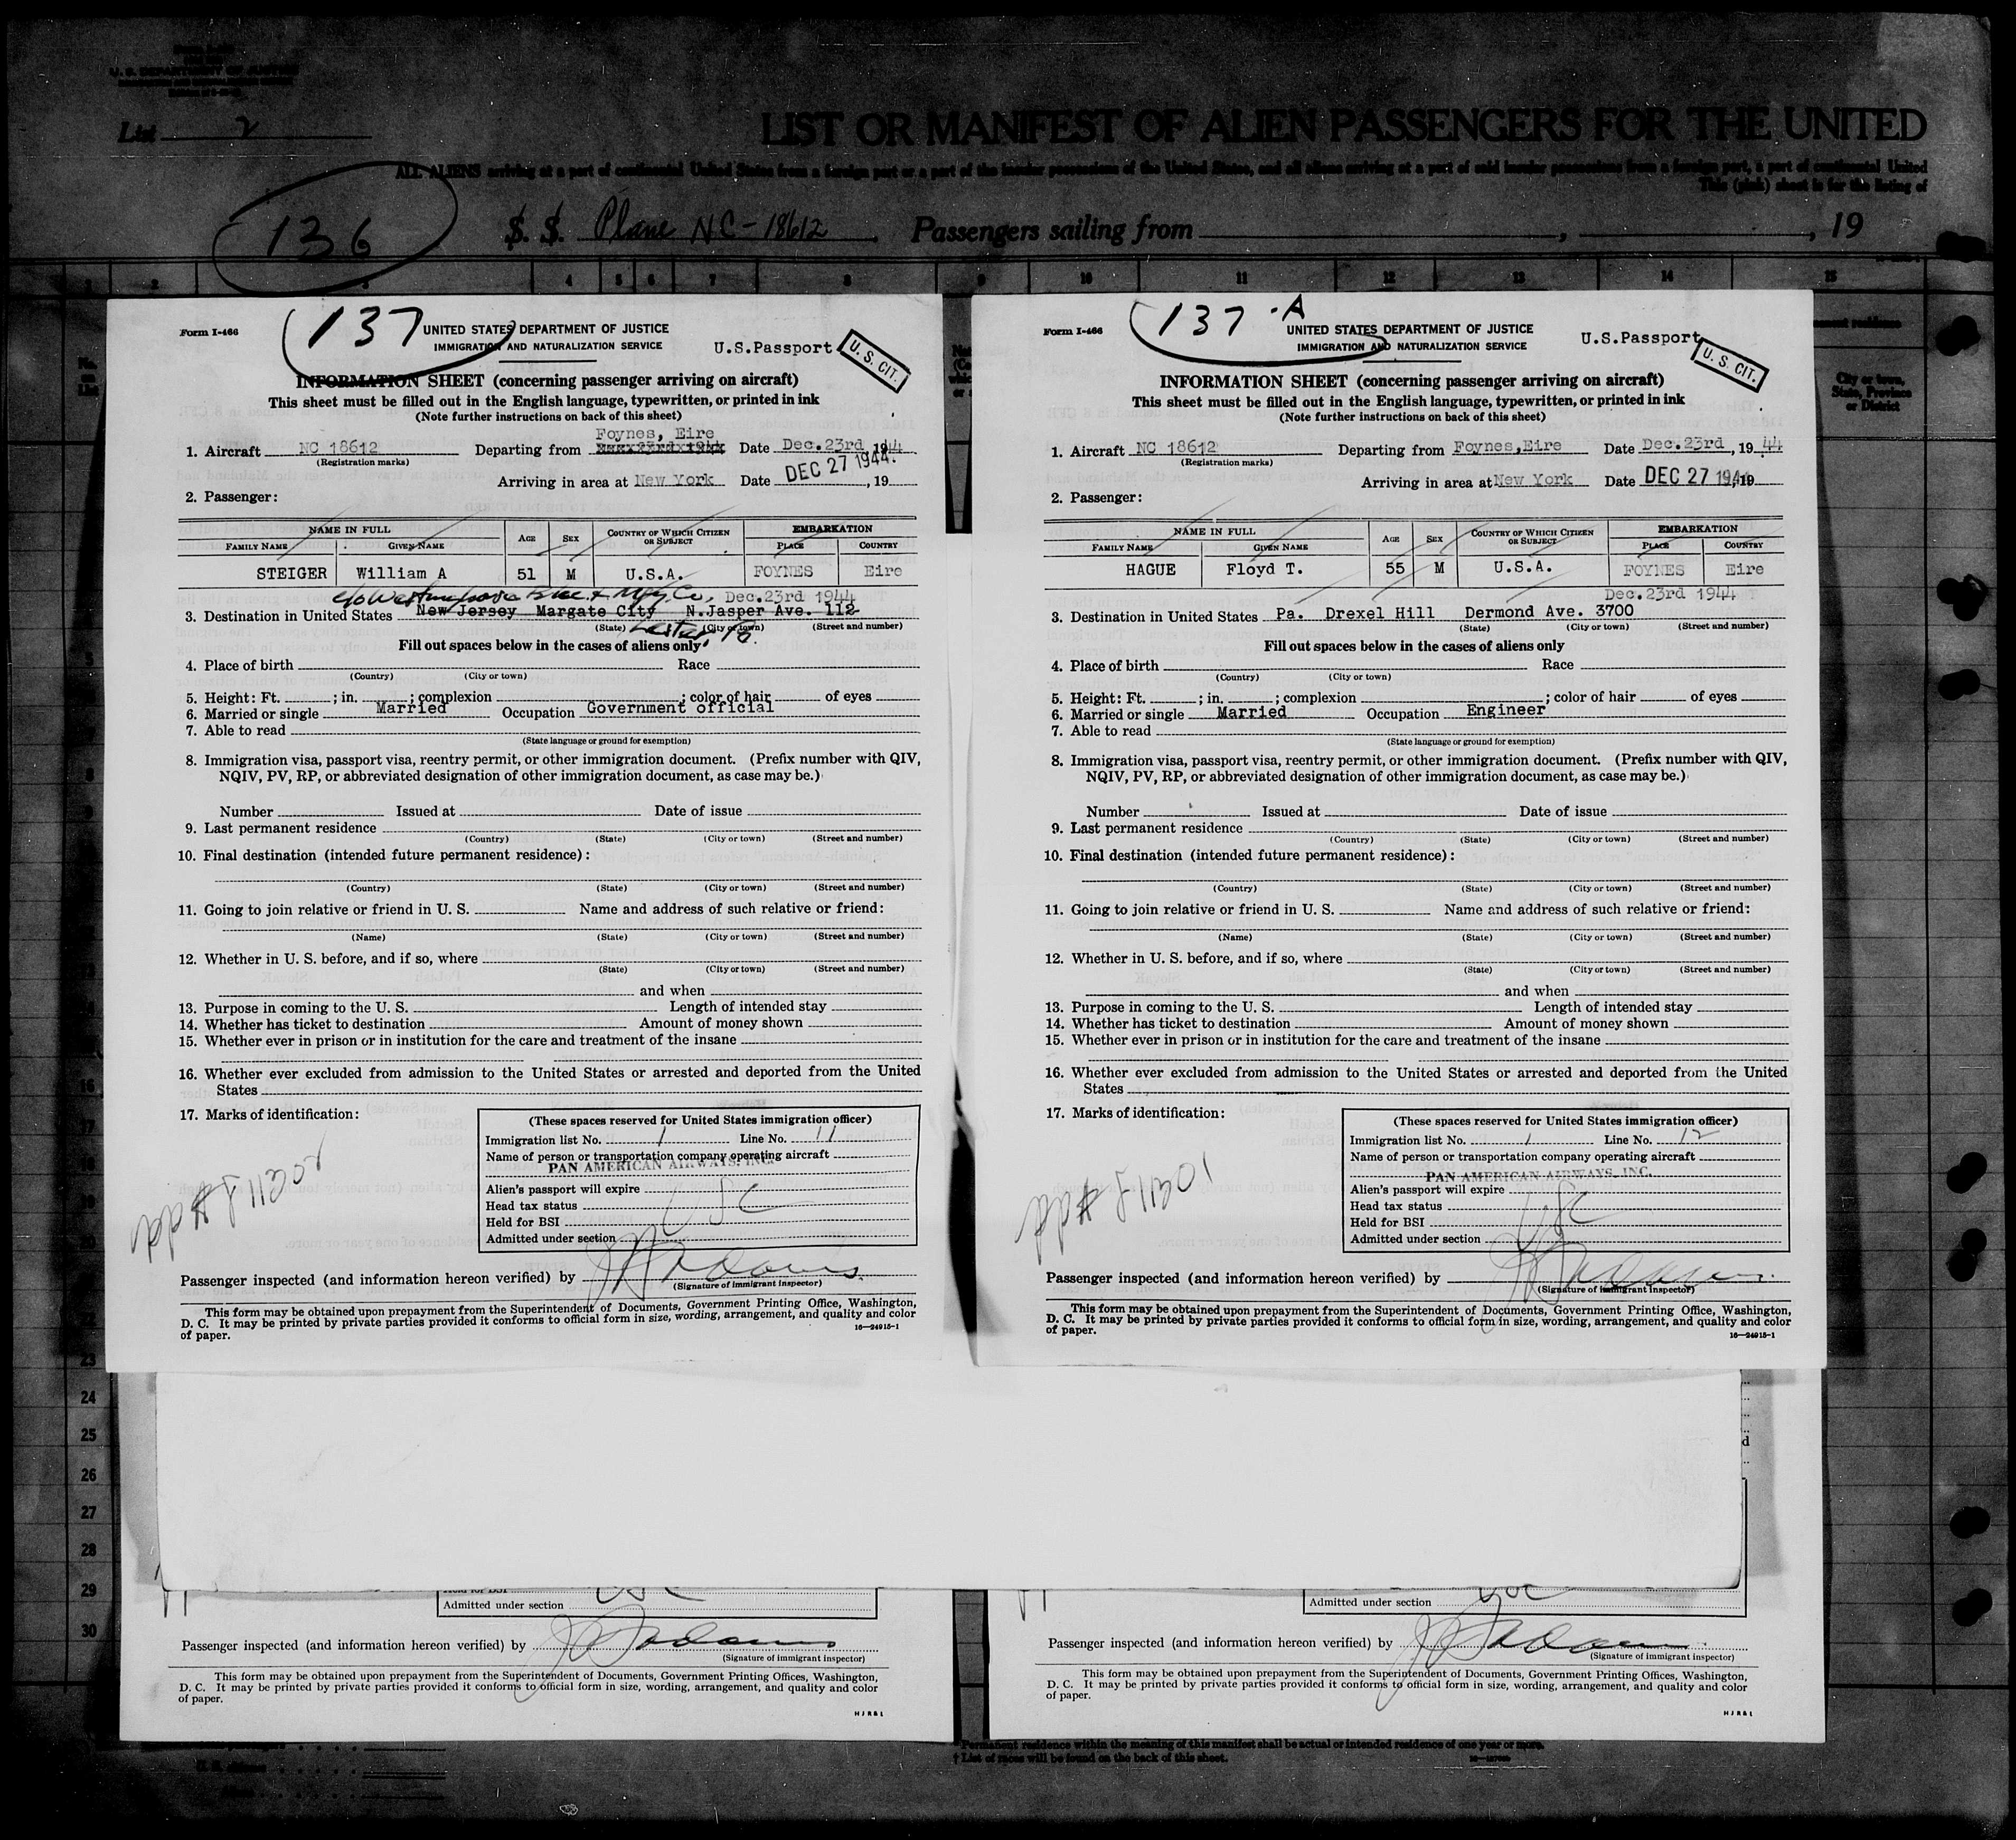 List 2
LIST OR MANIFEST OF ALIEN PASSENGERS FOR THE UNITED
ALL ALIENS arriving at a port of continental United States from a foreign port or a port of the insular possessions of the United States, and all aliens arriving at a port of said insular possessions from a foreign port, a port of continental United
This (pink) sheet is for the listing of
136
S. S. Plane NC-18612 Passengers sailing from , , 19
1 2 3 4 5 6 7 8 9 10 11 12 13 14 15
Form I-466
137
UNITED STATES DEPARTMENT OF JUSTICE
IMMIGRATION AND NATURALIZATION SERVICE
U.S.Passport
U. S. CIT.
INFORMATION SHEET (concerning passenger arriving on aircraft)
This sheet must be filled out in the English language, typewritten, or printed in ink
(Note further instructions on back of this sheet)
Foynes, Eire
1. Aircraft NC 18612 Departing from Date Dec.23rd 1944
(Registration marks)
Arriving in area at New York Date DEC 27 1944. , 19
2. Passenger:
NAME IN FULL AGE SEX COUNTRY OF WHICH CITIZEN OR SUBJECT EMBARKATION
FAMILY NAME GIVEN NAME PLACE COUNTRY
STEIGER William A 51 M U.S.A. FOYNES Eire
c/o Westinghouse Elec & Mfg. Co. Dec.23rd 1944
3. Destination in United States New Jersey Margate City N.Jasper Ave. 112
(State) Lester, Pa. (City or town) (Street and number)
Fill out spaces below in the cases of aliens only
4. Place of birth Race
(Country) (City or town)
5. Height: Ft. ; in. ; complexion ; color of hair of eyes
6. Married or single Married Occupation Government official
7. Able to read
(State language or ground for exemption)
8. Immigration visa, passport visa, reentry permit, or other immigration document. (Prefix number with QIV,
NQIV, PV, RP, or abbreviated designation of other immigration document, as case may be.)
Number Issued at Date of issue
9. Last permanent residence
(Country) (State) (City or town) (Street and number)
10. Final destination (intended future permanent residence):
(Country) (State) (City or town) (Street and number)
11. Going to join relative or friend in U. S. Name and address of such relative or friend:
(Name) (State) (City or town) (Street and number)
12. Whether in U. S. before, and if so, where
(State) (City or town) (Street and number)
and when
13. Purpose in coming to the U. S. Length of intended stay
14. Whether has ticket to destination Amount of money shown
15. Whether ever in prison or in institution for the care and treatment of the insane
16. Whether ever excluded from admission to the United States or arrested and deported from the United
States
17. Marks of identification:
(These spaces reserved for United States immigration officer)
Immigration list No. 1 Line No. 11
Name of person or transportation company operating aircraft
PAN AMERICAN AIRWAYS, INC.
Alien's passport will expire
USC
Head tax status
Held for BSI
Admitted under section
Passenger inspected (and information hereon verified) by
(Signature of immigrant inspector)
This form may be obtained upon prepayment from the Superintendent of Documents, Government Printing Office, Washington,
D. C. It may be printed by private parties provided it conforms to official form in size, wording, arrangement, and quality and color
of paper.
16—24915-1
Form I-466
137-A
UNITED STATES DEPARTMENT OF JUSTICE
IMMIGRATION AND NATURALIZATION SERVICE
U.S.Passport
U. S. CIT.
INFORMATION SHEET (concerning passenger arriving on aircraft)
This sheet must be filled out in the English language, typewritten, or printed in ink
(Note further instructions on back of this sheet)
1. Aircraft NC 18612 Departing from Foynes,Eire Date Dec.23rd , 19 44
(Registration marks)
Arriving in area at New York Date DEC 27 1944 19
2. Passenger:
NAME IN FULL AGE SEX COUNTRY OF WHICH CITIZEN OR SUBJECT EMBARKATION
FAMILY NAME GIVEN NAME PLACE COUNTRY
HAGUE Floyd T. 55 M U.S.A. FOYNES Eire
Dec.23rd 1944
3. Destination in United States Pa. Drexel Hill Dermond Ave. 3700
(State) (City or town) (Street and number)
Fill out spaces below in the cases of aliens only
4. Place of birth Race
(Country) (City or town)
5. Height: Ft. ; in. ; complexion ; color of hair of eyes
6. Married or single Married Occupation Engineer
7. Able to read
(State language or ground for exemption)
8. Immigration visa, passport visa, reentry permit, or other immigration document. (Prefix number with QIV,
NQIV, PV, RP, or abbreviated designation of other immigration document, as case may be.)
Number Issued at Date of issue
9. Last permanent residence
(Country) (State) (City or town) (Street and number)
10. Final destination (intended future permanent residence):
(Country) (State) (City or town) (Street and number)
11. Going to join relative or friend in U. S. Name and address of such relative or friend:
(Name) (State) (City or town) (Street and number)
12. Whether in U. S. before, and if so, where
(State) (City or town) (Street and number)
and when
13. Purpose in coming to the U. S. Length of intended stay
14. Whether has ticket to destination Amount of money shown
15. Whether ever in prison or in institution for the care and treatment of the insane
16. Whether ever excluded from admission to the United States or arrested and deported from the United
States
17. Marks of identification:
(These spaces reserved for United States immigration officer)
Immigration list No. 1 Line No. 12
Name of person or transportation company operating aircraft
PAN AMERICAN AIRWAYS, INC.
Alien's passport will expire
USC
Head tax status
Held for BSI
Admitted under section
Passenger inspected (and information hereon verified) by
(Signature of immigrant inspector)
This form may be obtained upon prepayment from the Superintendent of Documents, Government Printing Office, Washington,
D. C. It may be printed by private parties provided it conforms to official form in size, wording, arrangement, and quality and color
of paper.
16—24915-1
23
24
25
26
27
28
29
30
Admitted under section
Passenger inspected (and information hereon verified) by
(Signature of immigrant inspector)
This form may be obtained upon prepayment from the Superintendent of Documents, Government Printing Offices, Washington,
D. C. It may be printed by private parties provided it conforms to official form in size, wording, arrangement, and quality and color
of paper.
Admitted under section
Passenger inspected (and information hereon verified) by
(Signature of immigrant inspector)
This form may be obtained upon prepayment from the Superintendent of Documents, Government Printing Offices, Washington,
D. C. It may be printed by private parties provided it conforms to official form in size, wording, arrangement, and quality and color
of paper.
Permanent residence within the meaning of this manifest shall be actual or intended residence of one year or more.
† List of races will be found on the back of this sheet.